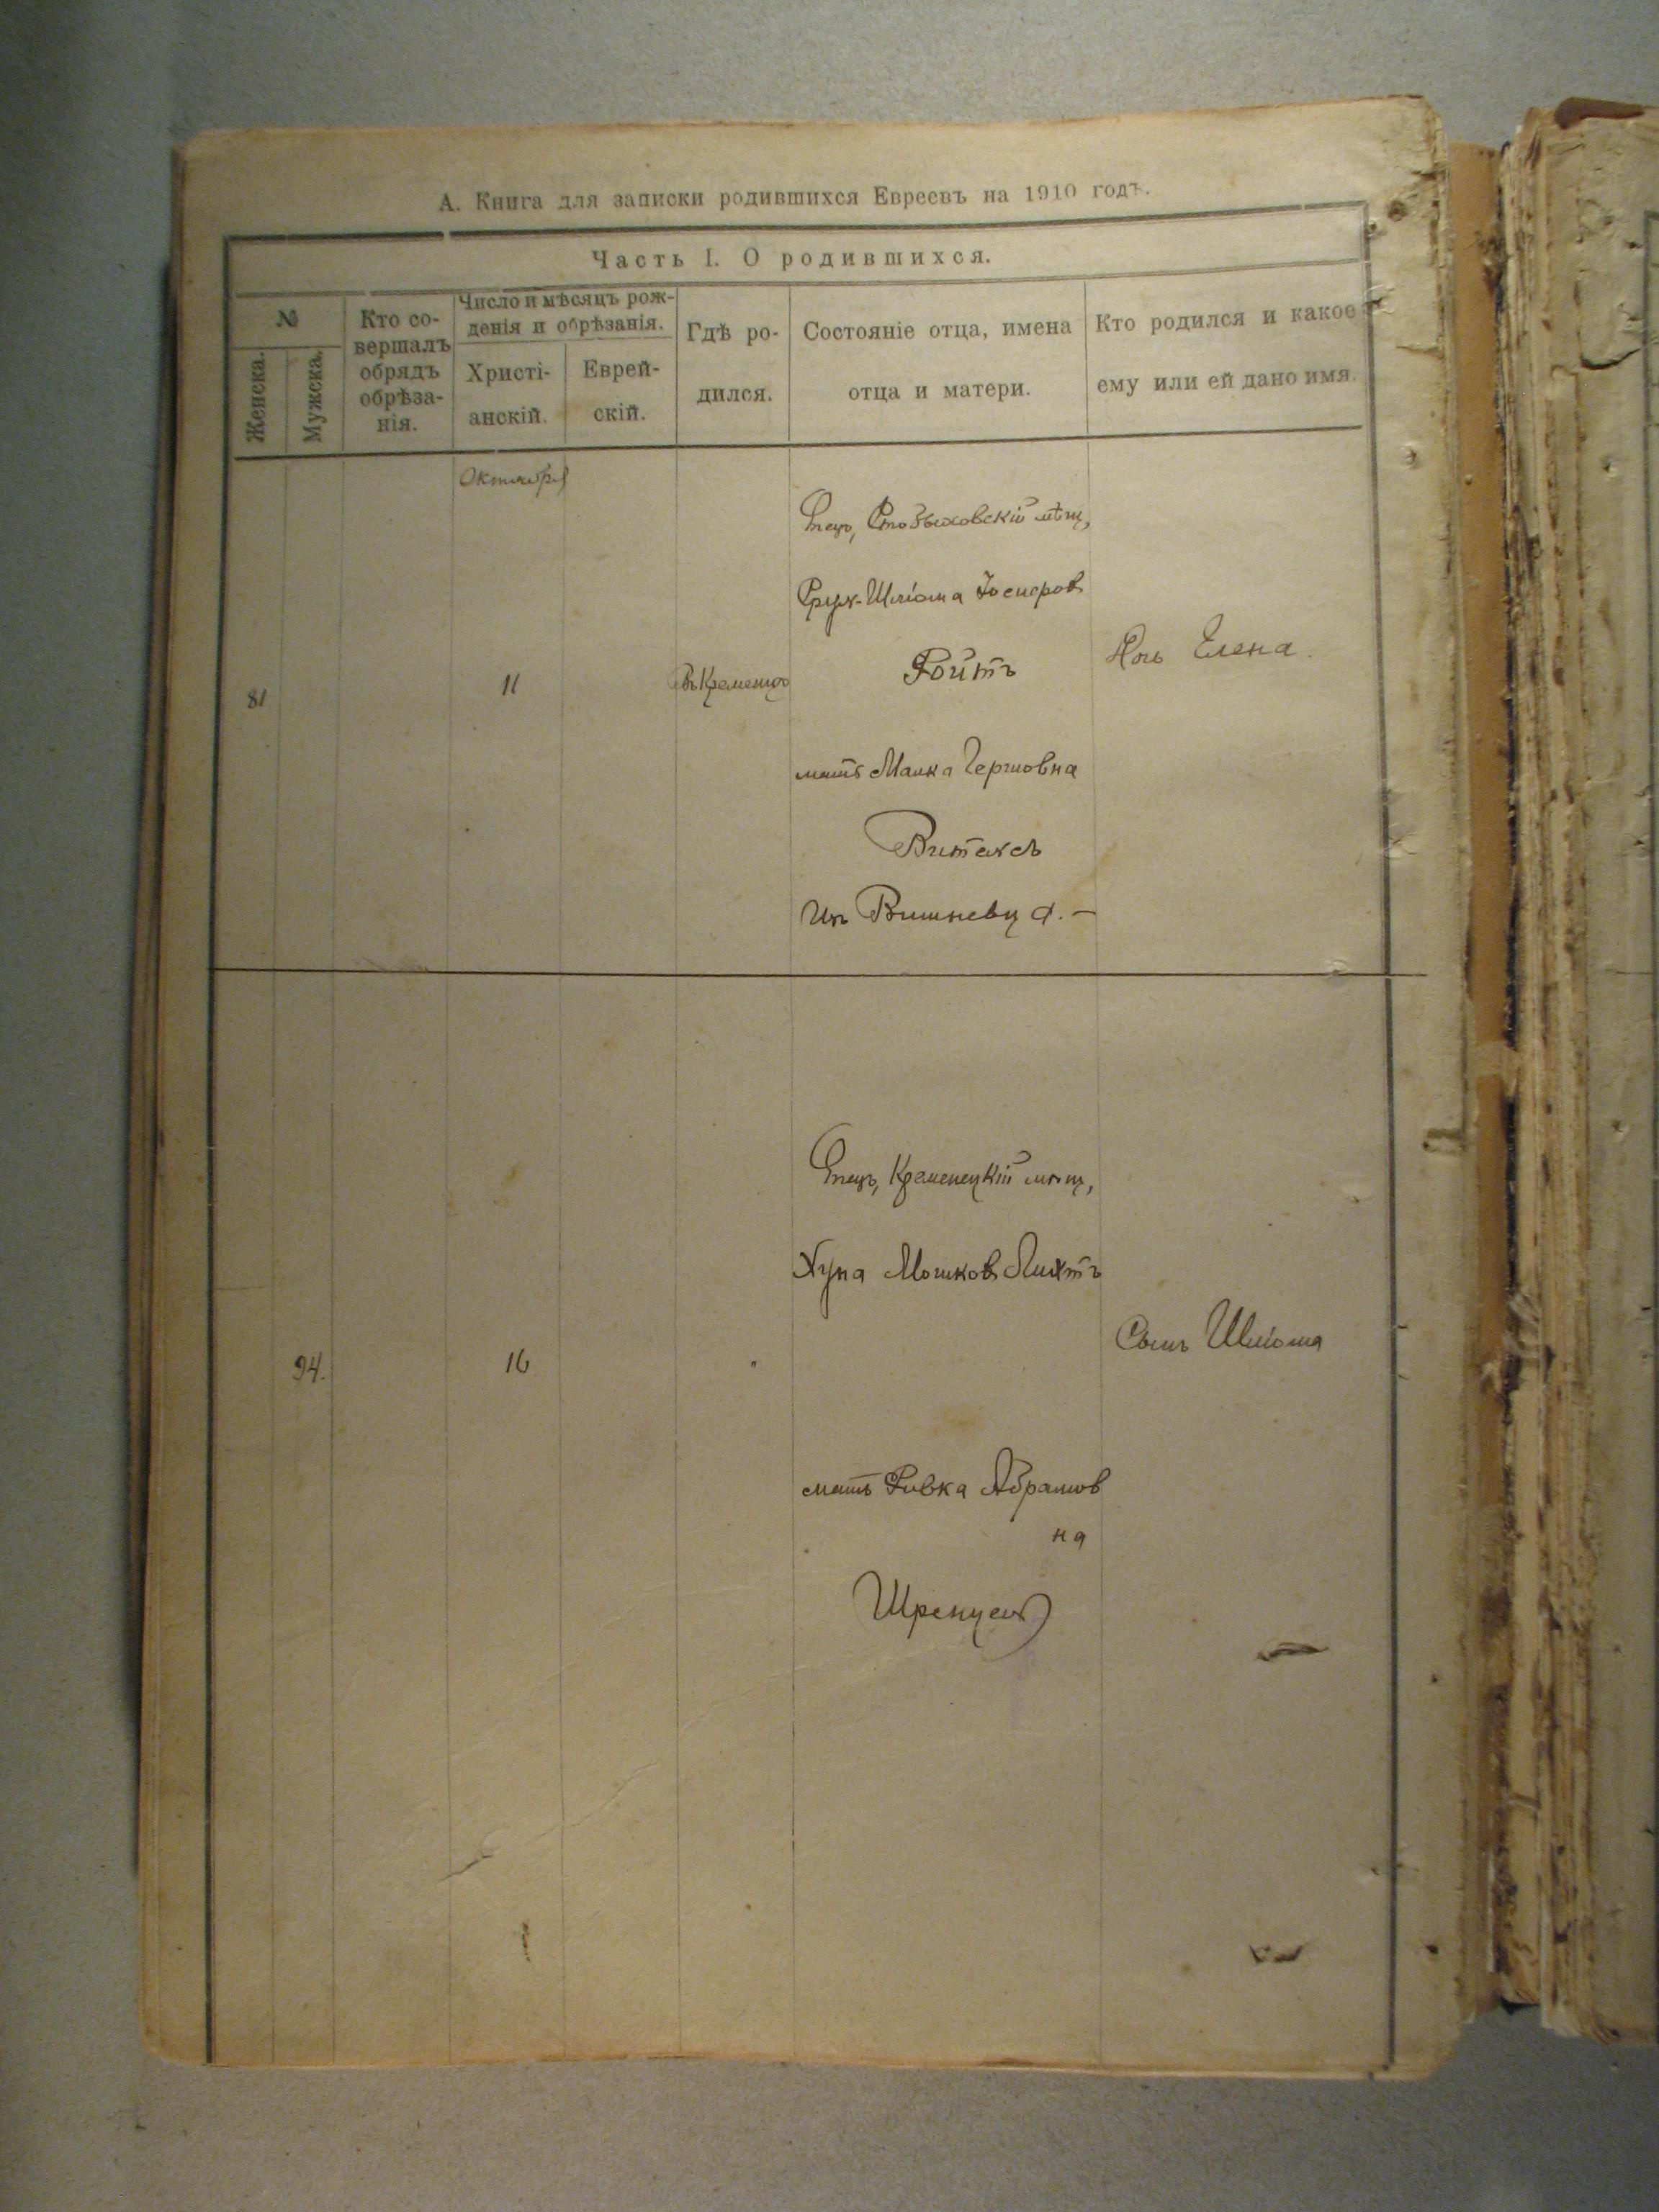 А. Книга для записки родившихся Евреевъ на 1910 годъ.
Часть I. О родившихся.
№
Женска.
Мужска.
Кто со-
вершалъ
обрядъ
обрѣза-
нія.
Число и мѣсяцъ рож-
денія и обрѣзанія.
Христі-
анскій.
Еврей-
скій.
Гдѣ ро-
дился.
Состояніе отца, имена
отца и матери.
Кто родился и какое
ему или ей дано имя.
Октября
81
11
Въ Кременцѣ
Отецъ, мѣщ,
Шліома
Ройтъ
мать Малка Гершовна
Изъ Вишневца. —
Дочь Елена.
94.
16
"
Отецъ, Кременецкій мѣщ,
Хуна Мошков Лихтъ
мать Ривка Абрамов
на
Шренцель
Сынъ Шліома